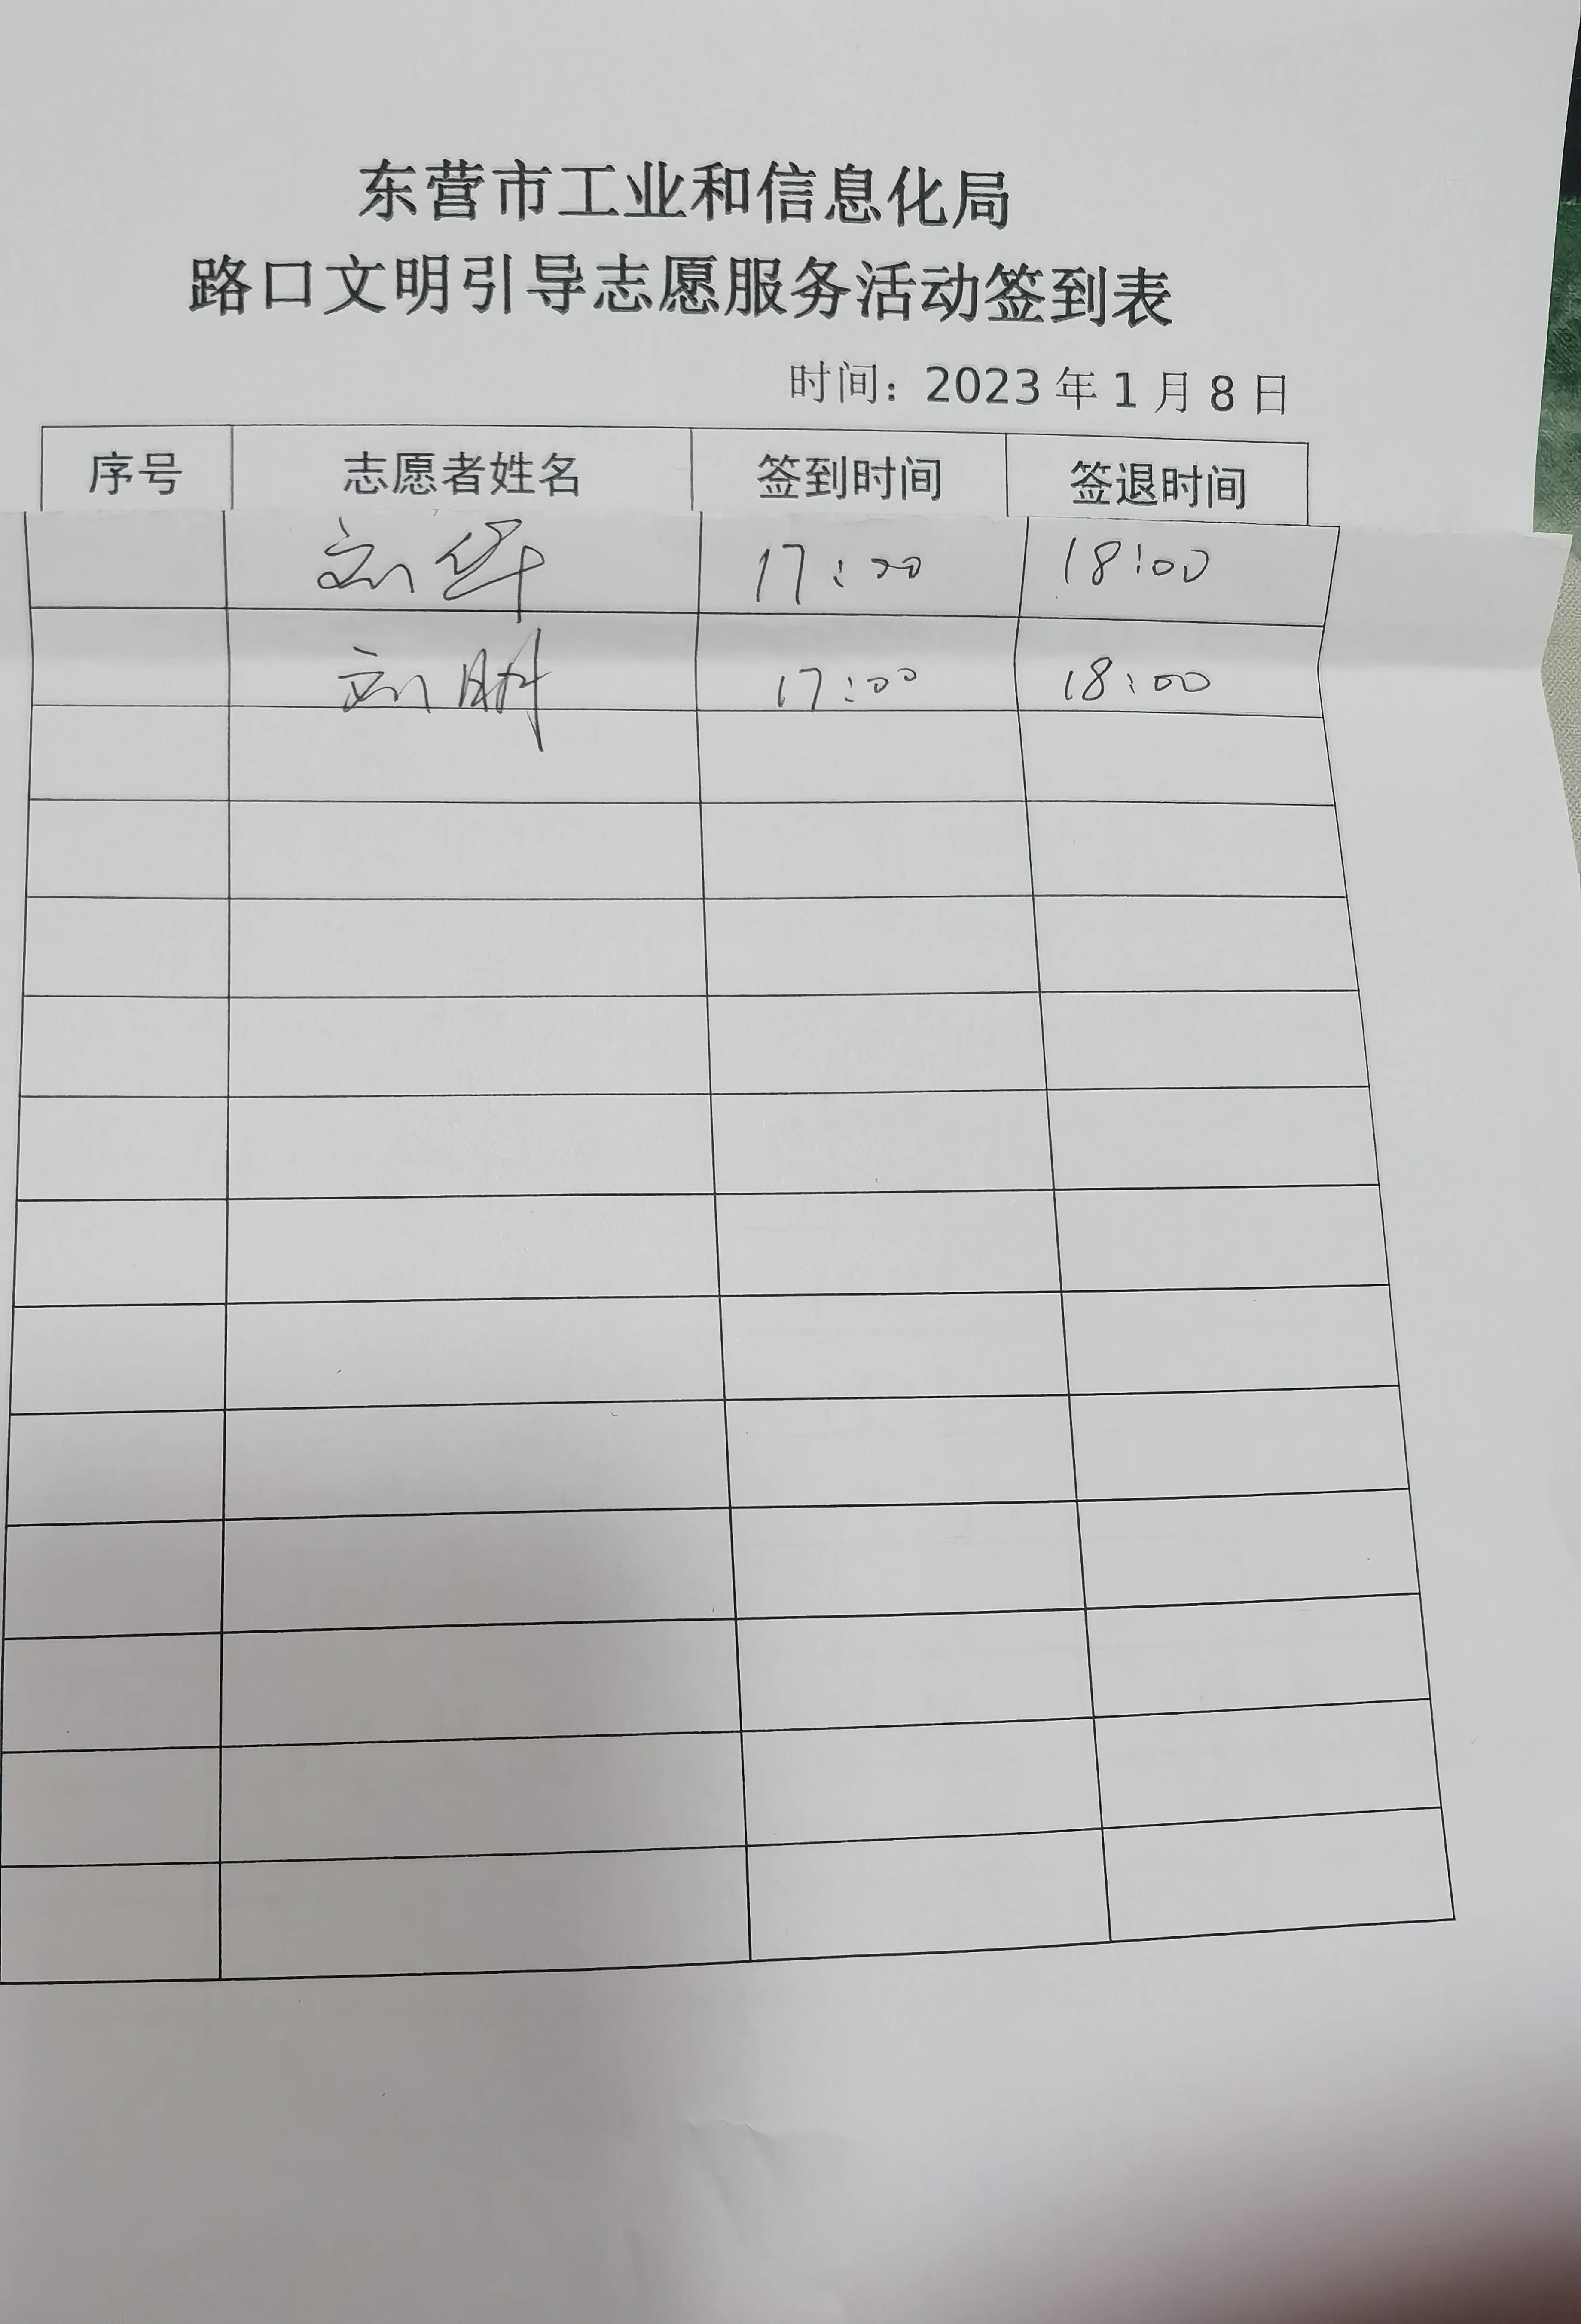 东营市工业和信息化局
路口文明引导志愿服务活动签到表
时间：2023年1月8日
序号 志愿者姓名 签到时间 签退时间
刘华 17:00 18:00
刘 17:00 18:00